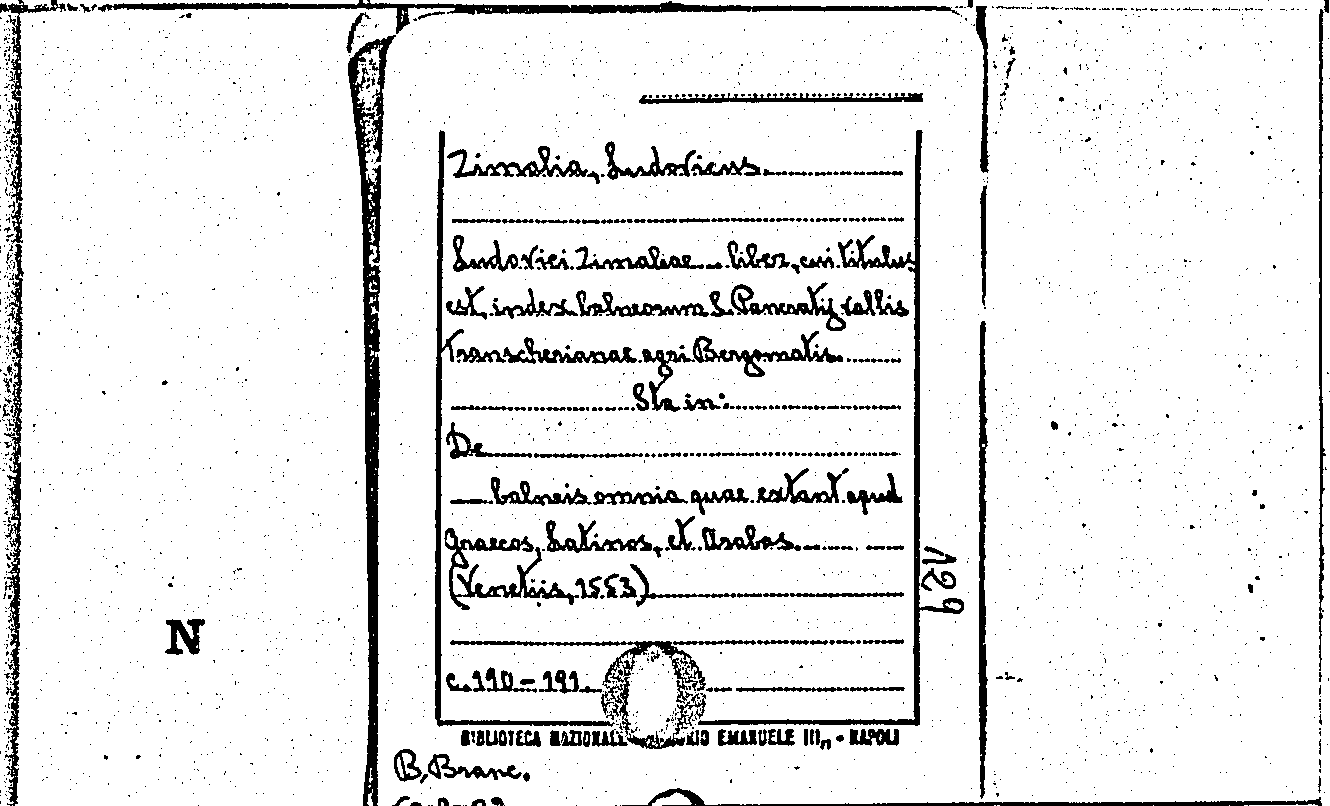 Zimalia, Ludovicus.
Ludovici Zimaliae liber, cui titulus
est, index balneorum S. Pancratij vallis
Transcherianae agri Bergomatis.
Sta in:
De
balneis omnia quae extant apud
Graecos, Latinos, et Arabas.
(Venetiis, 1553)
c. 190-191.
129
N
BIBLIOTECA NAZIONALE EMANUELE III - NAPOLI
B. Branc.